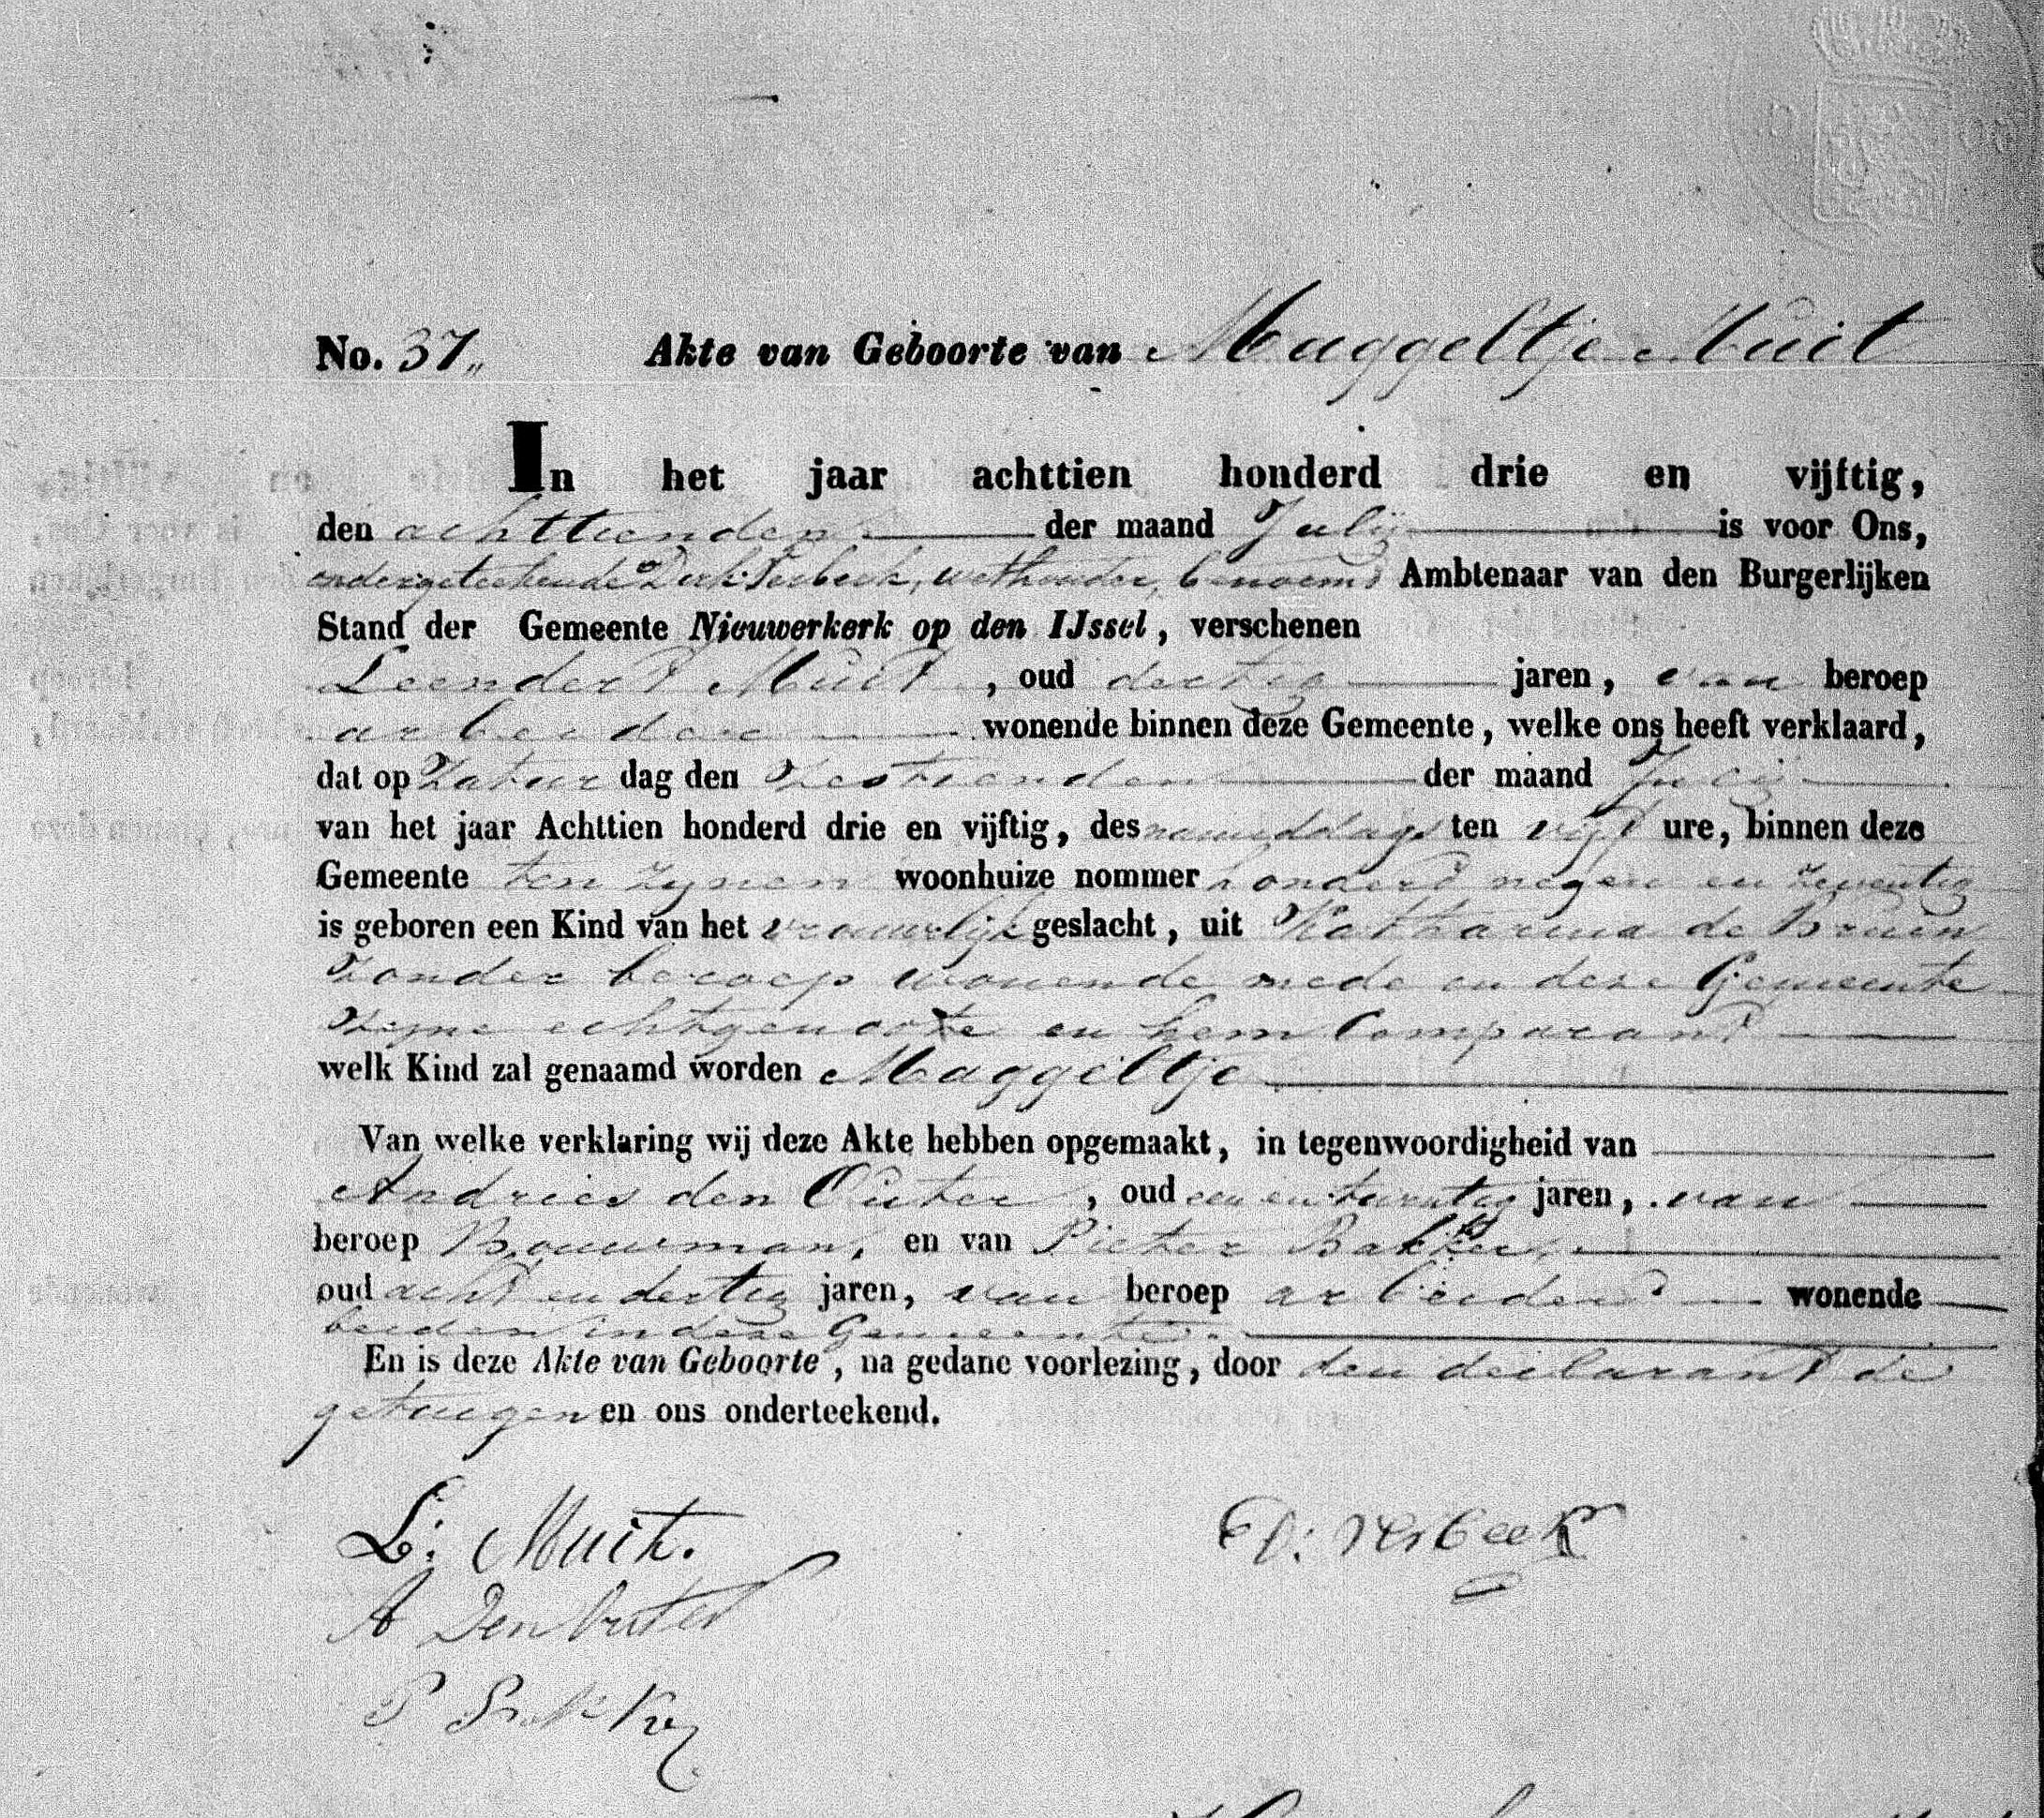 No. 37„ Akte van Geboorte van Maggeltje Muit
In het jaar achttien honderd drie en vijftig,
den achttienden der maand Julij is voor Ons,
ondergeteekende Dirk Verbeek, wethouder, benoemd Ambtenaar van den Burgerlijken
Stand der Gemeente Nieuwerkerk op den IJssel, verschenen
Leendert Muit, oud dertig jaren, van beroep
arbeider wonende binnen deze Gemeente, welke ons heeft verklaard,
dat op Zatur dag den Zestienden der maand Julij
van het jaar Achttien honderd drie en vijftig, des namiddags ten vijf ure, binnen deze
Gemeente ten zynen woonhuize nommer honderd negen en zeventig
is geboren een Kind van het vrouwelijk geslacht, uit Katharina de Bruin
Zonder beroep wonende mede in deze Gemeente
Zyne echtgenoote en hem Comparant
welk Kind zal genaamd worden Maggeltje
Van welke verklaring wij deze Akte hebben opgemaakt, in tegenwoordigheid van
Andries den Outer, oud een en twintig jaren, van
beroep Bouwman, en van Pieter Bakker
oud acht en dertig jaren, van beroep arbeider wonende
beiden in deze Gemeente.
En is deze Akte van Geboorte, na gedane voorlezing, door den declarant de
getuigen en ons onderteekend.
L: Muit. D: Verbeek
A Den Outer
P Bakker